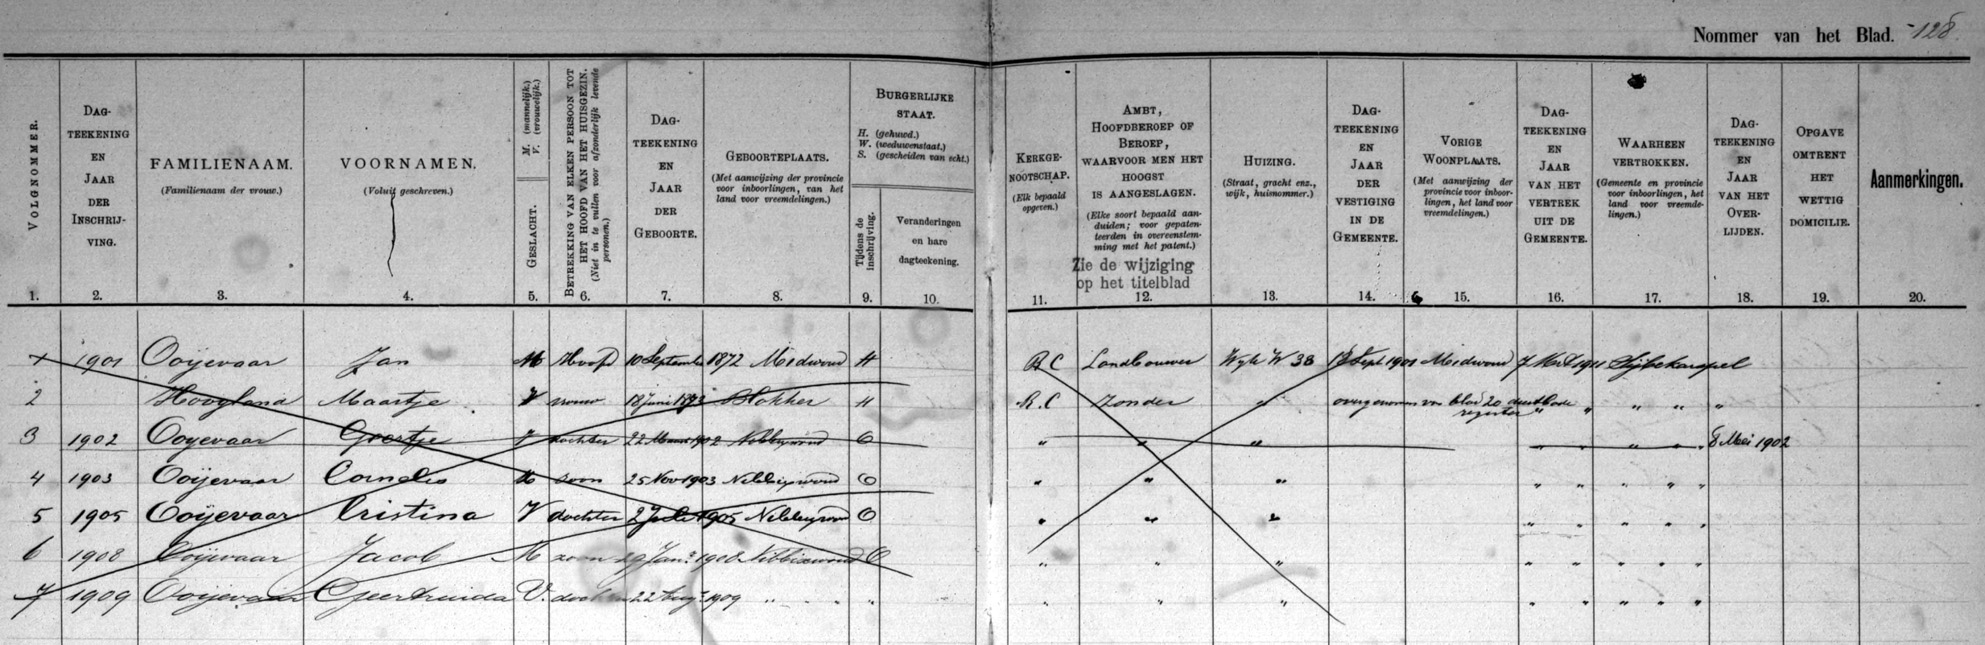 Nommer van het Blad. 128.
VOLGNOMMER.
DAG-
TEEKENING
EN
JAAR
DER
INSCHRIJ-
VING.
FAMILIENAAM.
(Familienaam der vrouw.)
VOORNAMEN.
(Voluit geschreven.)
GESLACHT.
M. (mannelijk.)
V. (vrouwelijk.)
BETREKKING VAN ELKEN PERSOON TOT
HET HOOFD VAN HET HUISGEZIN.
(Niet in te vullen voor afzonderlijk levende
personen.)
DAG-
TEEKENING
EN
JAAR
DER
GEBOORTE.
GEBOORTEPLAATS.
(Met aanwijzing der provincie
voor inboorlingen, van het
land voor vreemdelingen.)
BURGERLIJKE
STAAT.
H. (gehuwd.)
W. (weduwenstaat.)
S. (gescheiden van echt.)
Tijdens de
inschrijving.
Veranderingen
en hare
dagteekening.
KERKGE-
NOOTSCHAP.
(Elk bepaald
opgeven.)
AMBT,
HOOFDBEROEP OF
BEROEP,
WAARVOOR MEN HET
HOOGST
IS AANGESLAGEN.
(Elke soort bepaald aan-
duiden; voor gepaten-
teerden in overeenstem-
ming met het patent.)
Zie de wijziging
op het titelblad
HUIZING.
(Straat, gracht enz.,
wijk, huisnommer.)
DAG-
TEEKENING
EN
JAAR
DER
VESTIGING
IN DE
GEMEENTE.
VORIGE
WOONPLAATS.
(Met aanwijzing der
provincie voor inboor-
lingen, het land voor
vreemdelingen.)
DAG-
TEEKENING
EN
JAAR
VAN HET
VERTREK
UIT DE
GEMEENTE.
WAARHEEN
VERTROKKEN.
(Gemeente en provincie
voor inboorlingen, het
land voor vreemde-
lingen.)
DAG-
TEEKENING
EN
JAAR
VAN HET
OVER-
LIJDEN.
OPGAVE
OMTRENT
HET
WETTIG
DOMICILIE.
Aanmerkingen.
1. 2. 3. 4. 5. 6. 7. 8. 9. 10. 11. 12. 13. 14. 15. 16. 17. 18. 19. 20.
1 1901 Ooijevaar Jan M Hoofd 10 September 1872 Midwoud H R C Landbouwer Wyk W 38 Sept 1901 Midwoud 7 1911 Sijbekarspel
2 Hoogland Maartje V vrouw 18 Juni Blokker H R.C Zonder " overgenomen van blad 20 register " " " " "
3 1902 Ooyevaar Geertje V dochter 22 1902 Nibbixwoud O " " " " " " " " 8 Mei 1902
4 1903 Ooijevaar Cornelis M zoon 25 Nov 1903 Nibbixwoud O " " " " " " " "
5 1905 Ooijevaar Cristina V dochter 2 1905 Nibbixwoud O " " " " " " " "
6 1908 Ooijevaar Jacob M zoon 29 Jan. 1908 Nibbixwoud O " " " " " " " "
7 1909 Ooijevaar Geertruida V. dochter 22 Aug. 1909 " " " " " " " " " " "